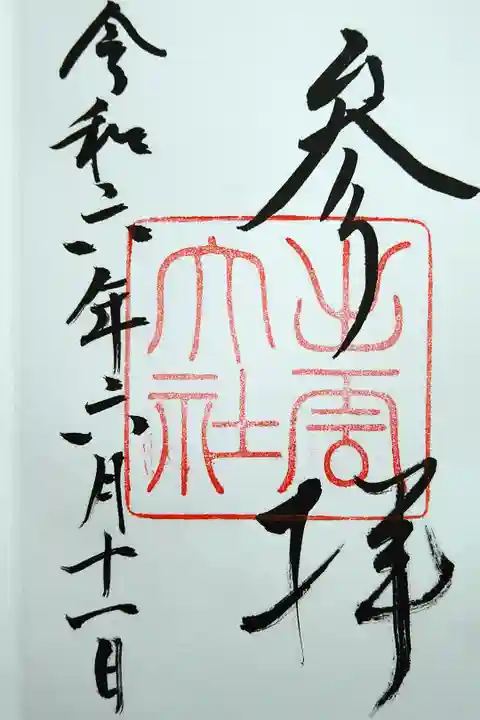 参拝
出雲
大社
令和六年六月十一日